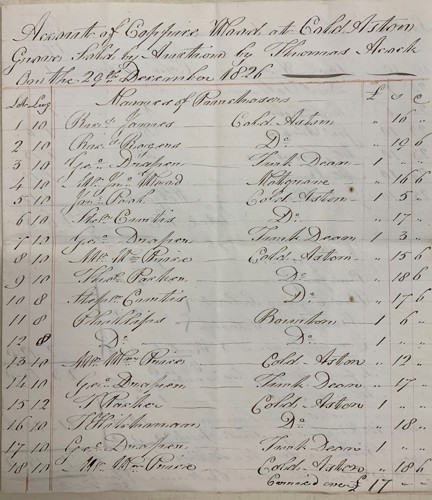 Account of Coppice Wood at Cold Aston
Grove Sold by Auction by Thomas Acock
On the 29th December 1826
Lots Lugg Names of Purchasers £ s d
1 10 Richd James Cold Aston " 16 "
2 10 Richd Rogers Do " 19 6
3 10 Geo. Draper Turk Dean 1 " "
4 10 Mr Jno Wood Notgrove " 16 6
5 10 Jno Cook Cold Aston 1 5 "
6 10 Stepn Curtis Do " 17 "
7 12 Geo. Draper Turk Dean 1 3 "
8 10 Mr Wm Price Cold Aston " 15 6
9 10 Thos Parker Do " 18 6
10 8 Stepn Curtis Do " 17 6
11 8 Phillips Bourton 1 6 "
12 8 Do Do 1 " "
13 10 Mr Wm Price Cold Aston " 12 "
14 10 Geo. Draper Turk Dean " 17 "
15 12 T Parker Cold Aston 1 " "
16 10 T Hitchman Do " 18 "
17 10 Geo. Draper Turk Dean 1 " "
18 10 Mr Wm Price Cold Aston " 18 6
Carried over £ 17 " "